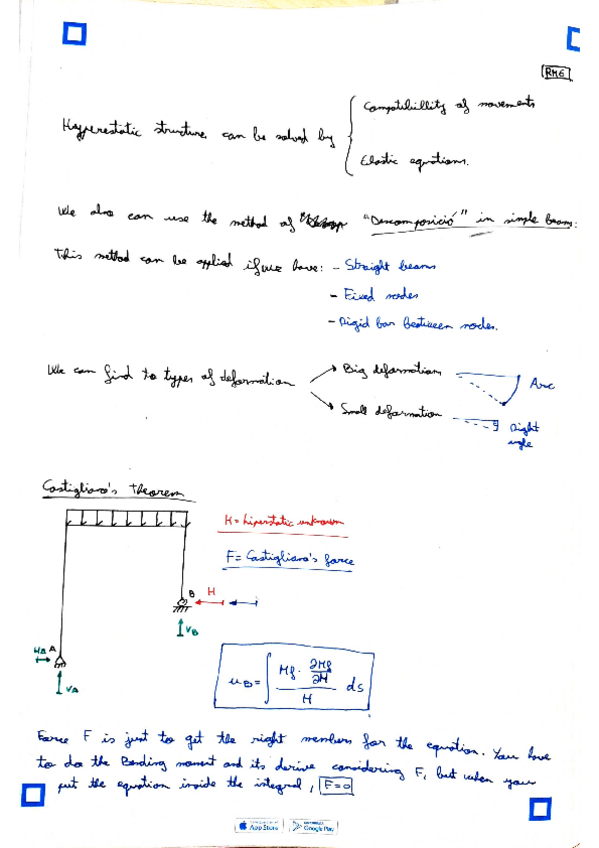 RM6
Compatibillity of movements
Hyperestatic structure can be solved by
Elastic equations.
We also can use the method of "Descomposició" in simple beams:
This method can be applied if we have: - Straight beams
- Fixed nodes
- Rigid bar between nodes.
We can find to types of deformation
Big deformations
Arc
Small deformation
Right
angle
Castigliano's theorem
H = hiperstatic unknown
F = Castigliano's force
B
H
VB
HA A
VA
uB = ∫ Mf · ∂Mf/∂H / H ds
Force F is just to get the right members for the equation. You have
to do the Bending moment and its derive considering F, but when you
put the equation inside the integral, F=0
App Store
Google Play